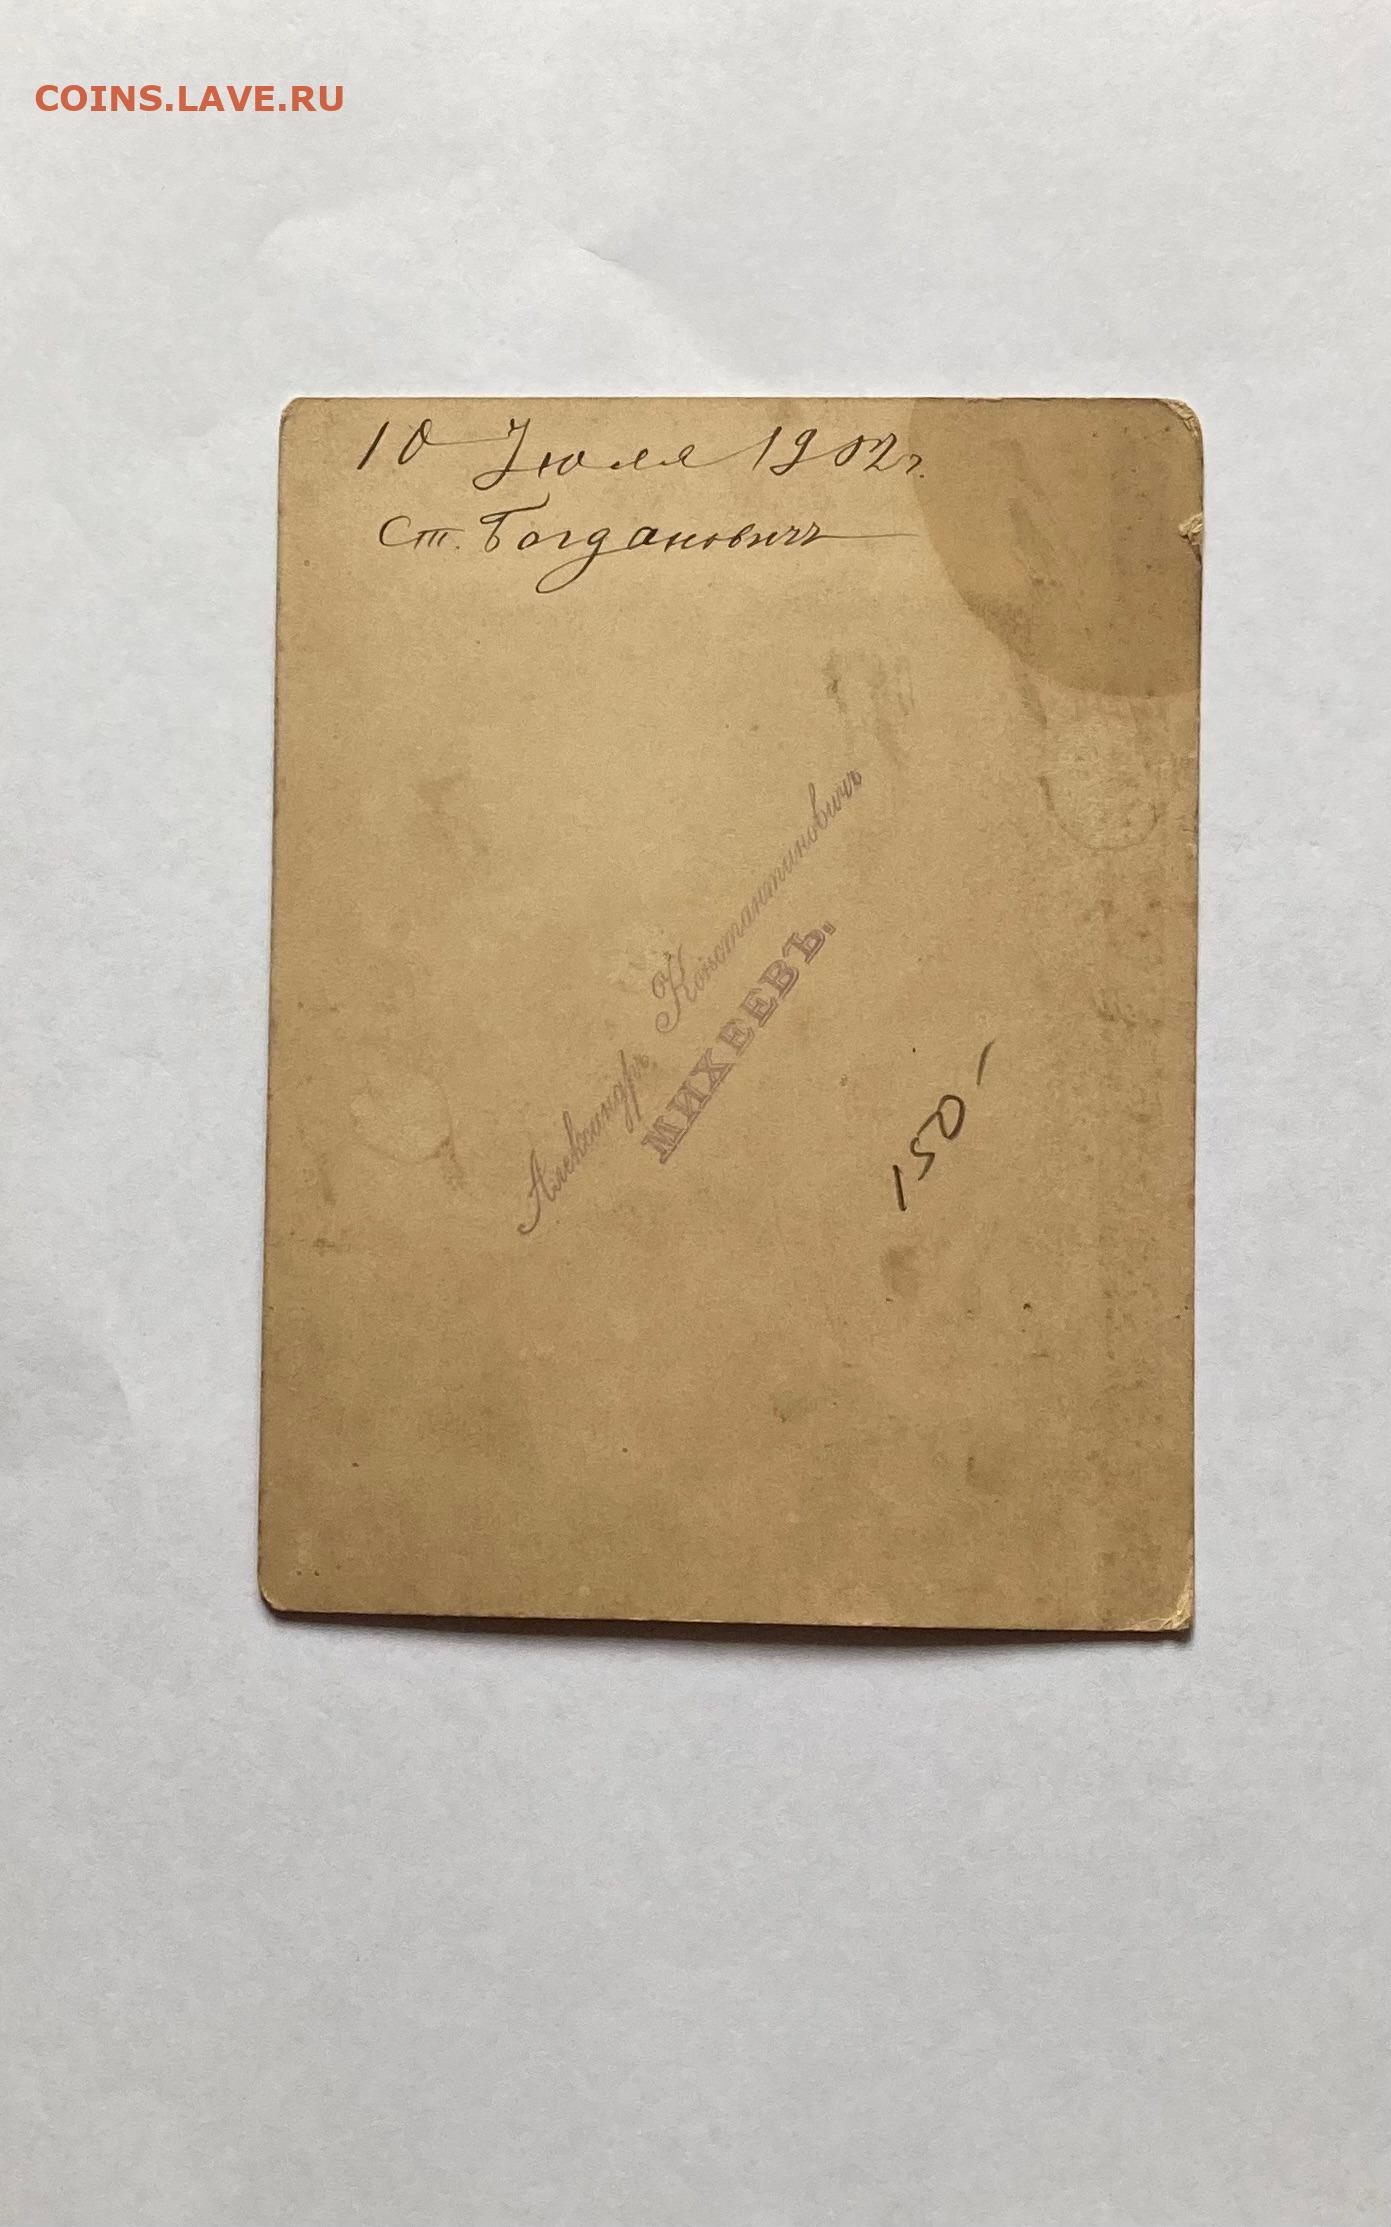 COINS.LAVE.RU
10 Июля 1902 г.
Ст. Богдановичъ
Александръ Константиновичъ
МИХЕЕВЪ.
150-